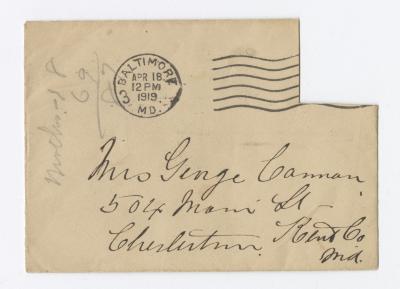 BALTIMORE
APR 18
12 PM
1919
MD.
3
69
Mrs George Cannan
504 Main St
Chestertown Kent Co
Md.